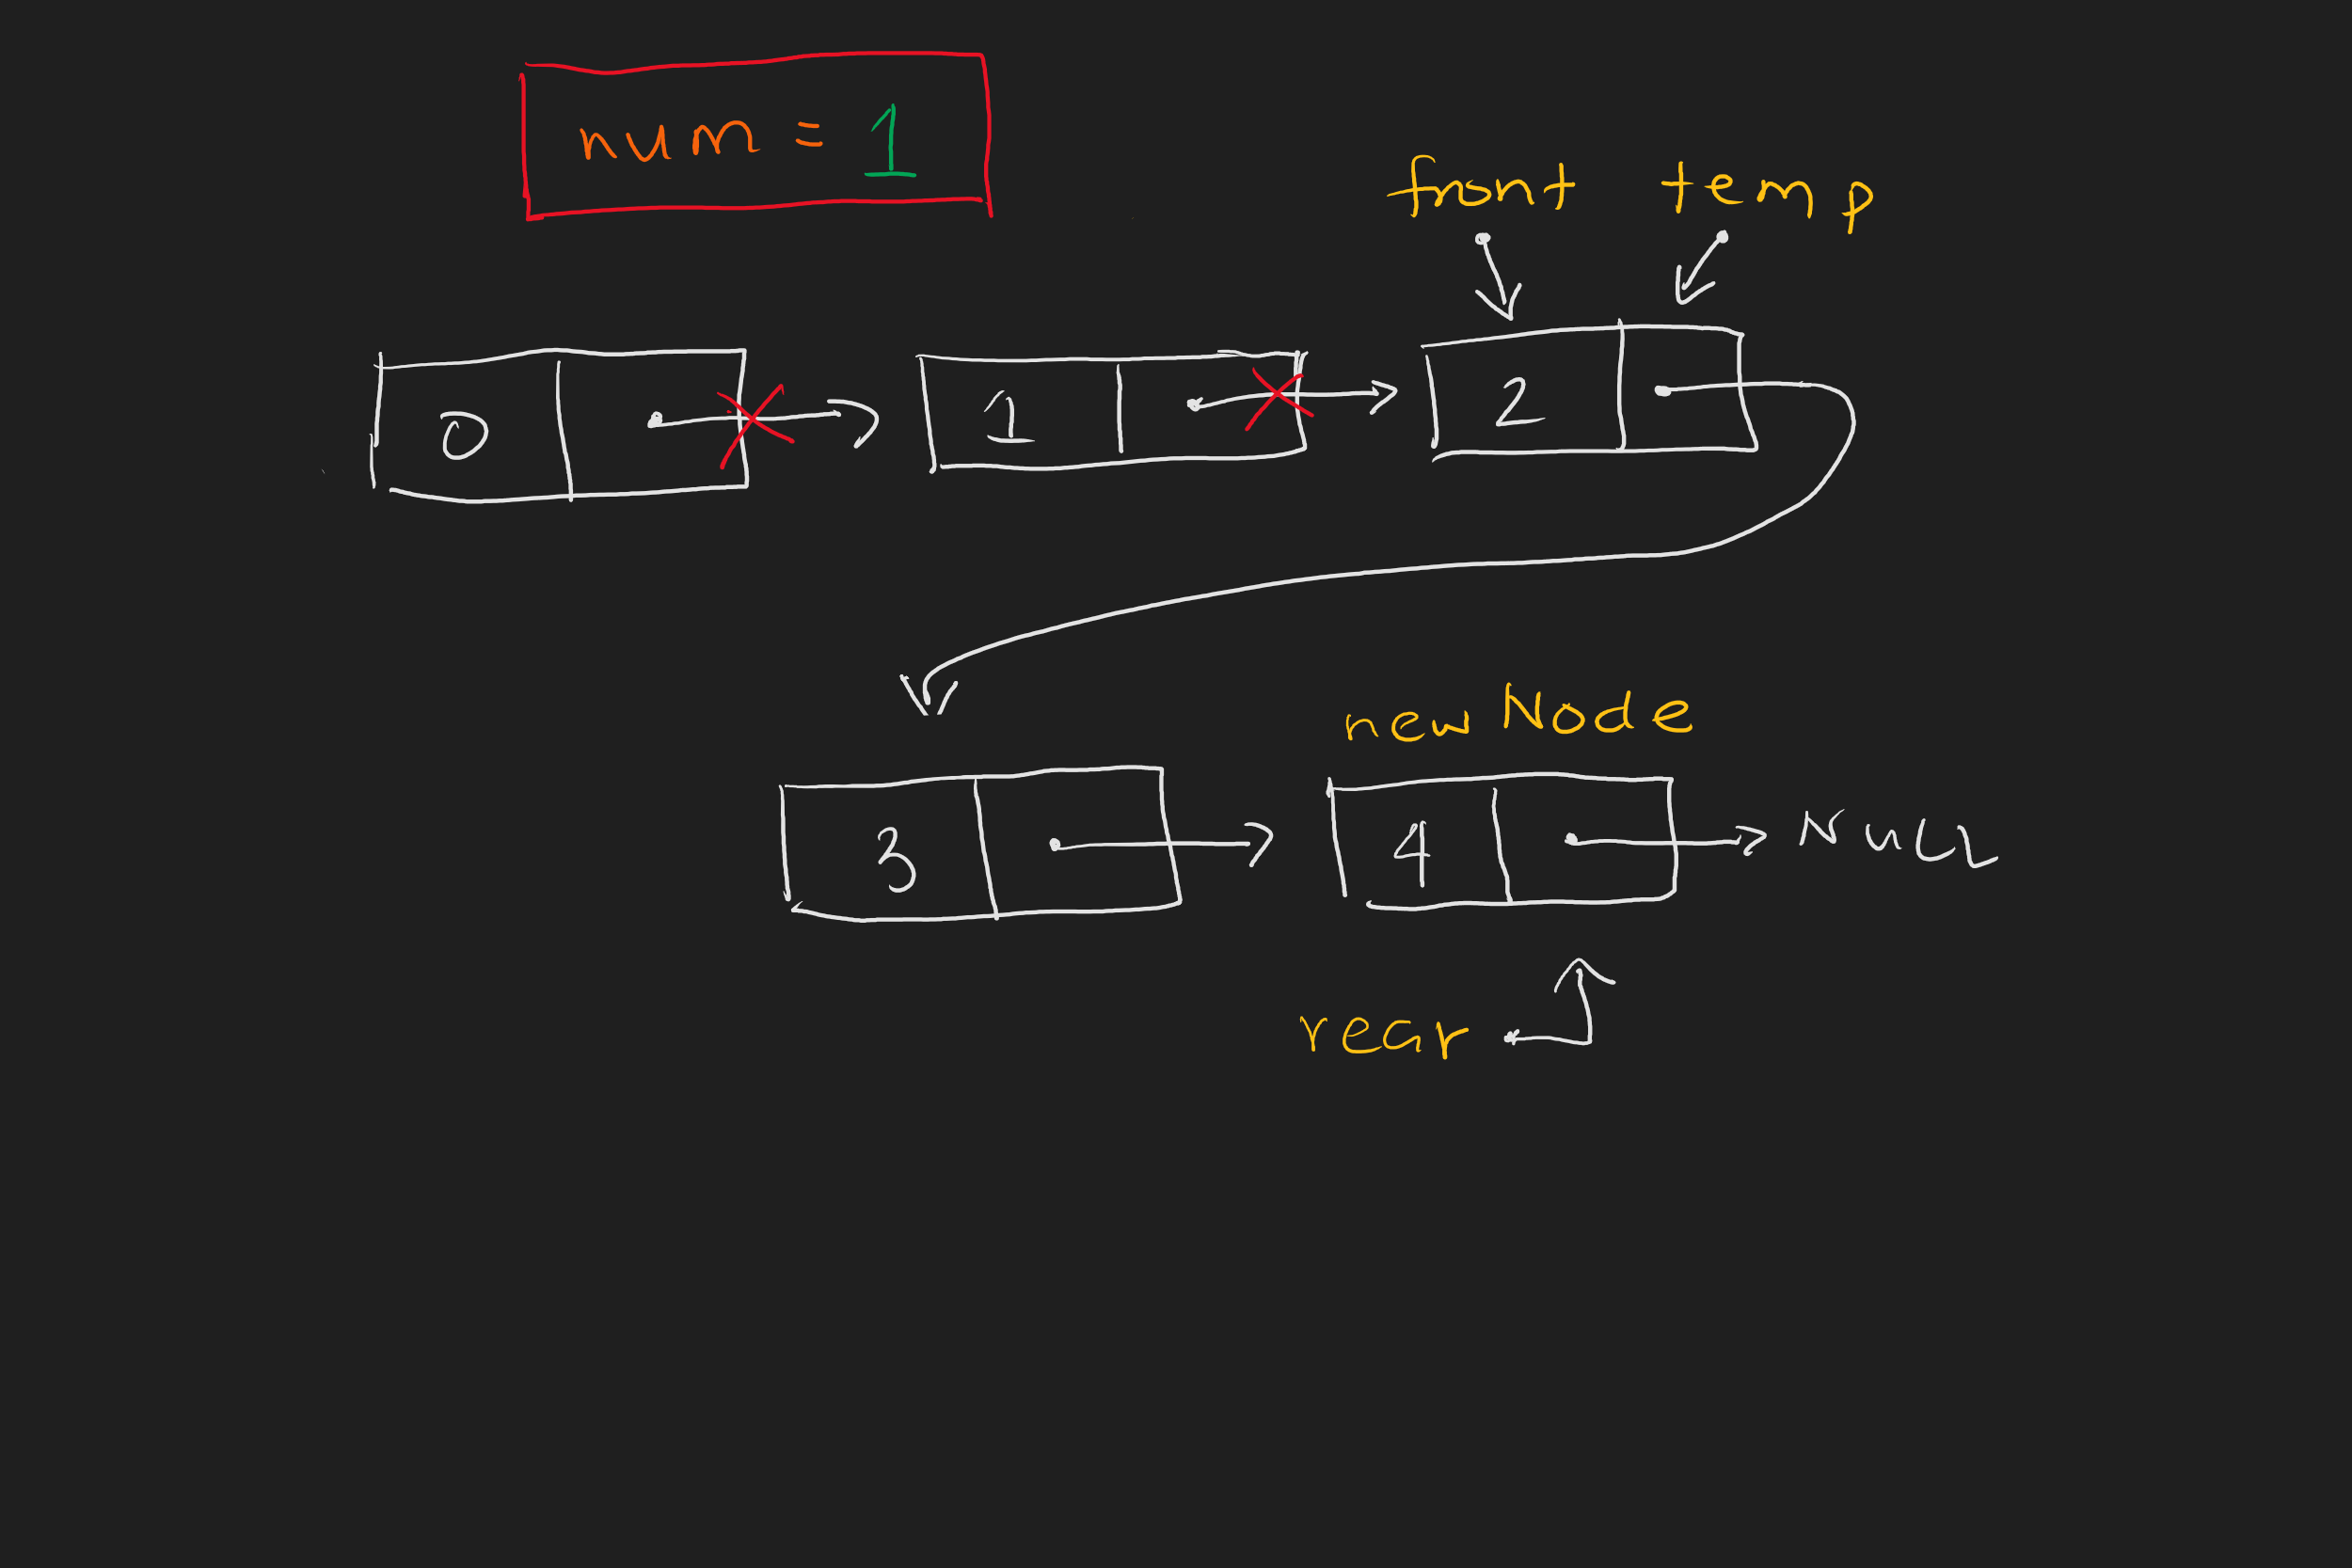 num = 1
front temp
0 1 2
newNode
3 4 NULL
rear